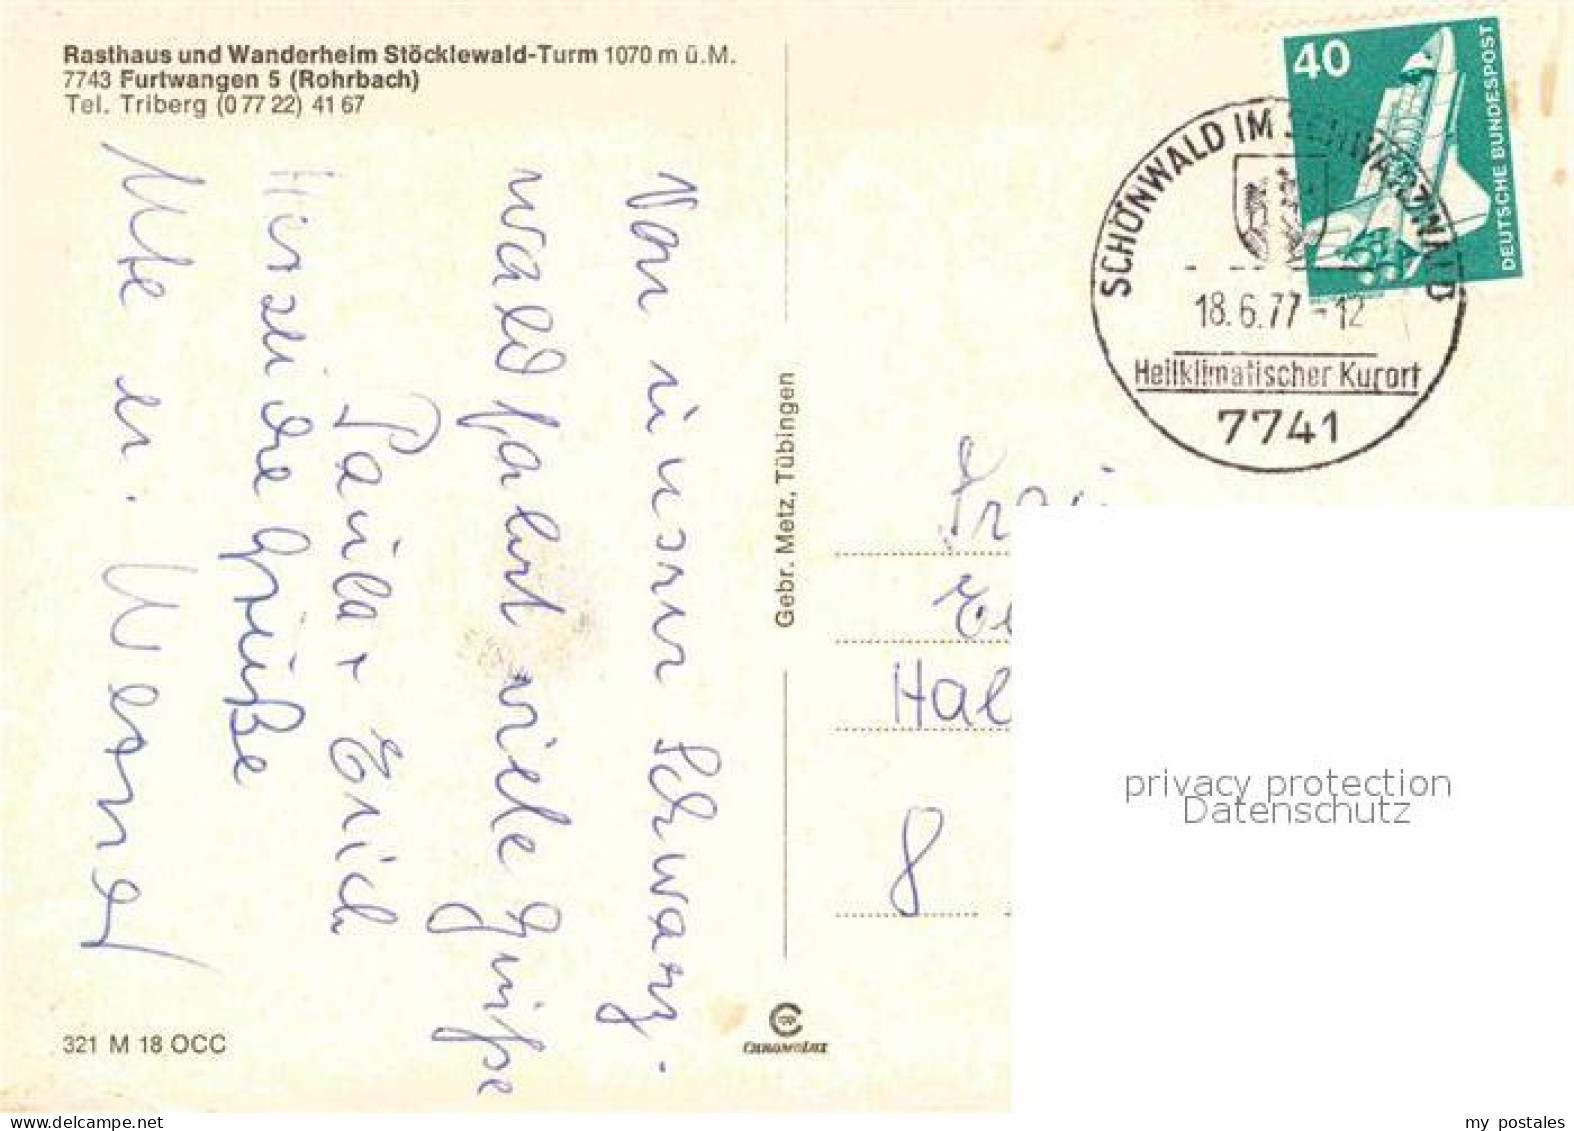 Rasthaus und Wanderheim Stöcklewald-Turm 1070 m ü.M.
7743 Furtwangen 5 (Rohrbach)
Tel. Triberg (0 77 22) 41 67
Von unserer Schwarz-
waldfahrt viele Grüße
Paula + Erich
Herzliche Grüße
Ute u. Werner
321 M 18 OCC
Gebr. Metz, Tübingen
CHROMOLUX
40
DEUTSCHE BUNDESPOST
SCHÖNWALD IM SCHWARZWALD
18.6.77-12
Heilklimatischer Kurort
7741
Hal
8
privacy protection
Datenschutz
www.delcampe.net
my_postales